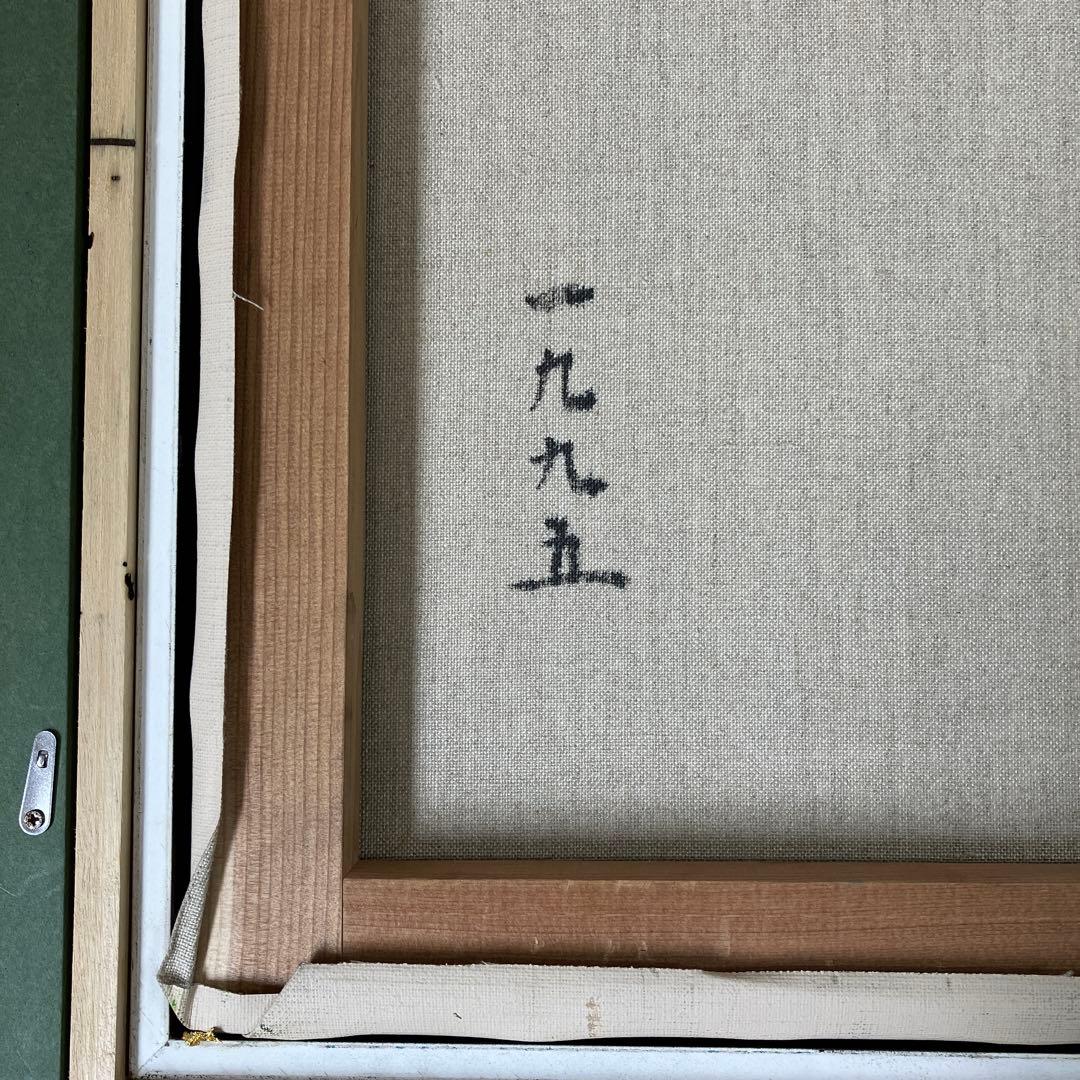 一九九五